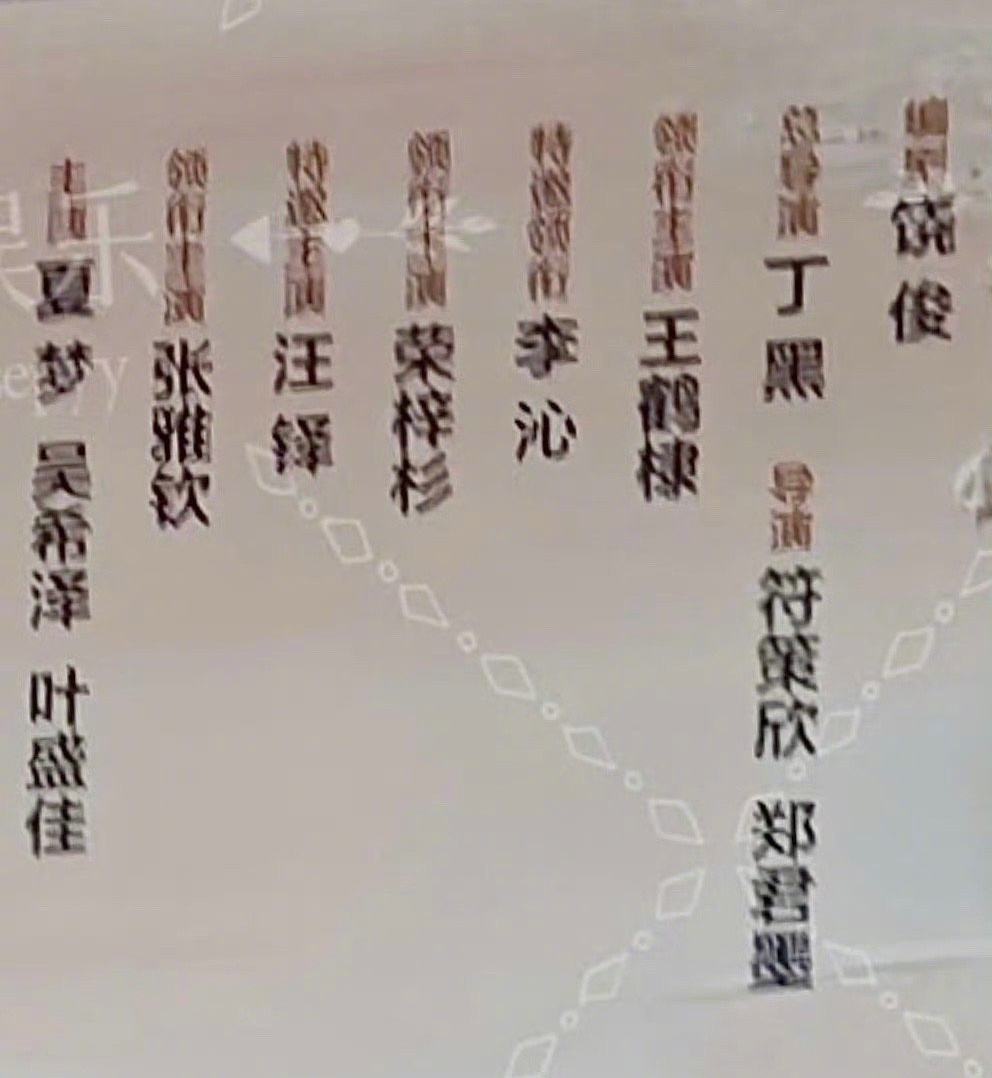 编剧 饶俊
总导演 丁黑 导演 符策欣
领衔主演 王鹤棣
特邀领衔 李沁
领衔主演 荣梓杉
特邀主演 汪铎
领衔主演 张雅钦
主演 夏梦 吴希泽 叶盛佳